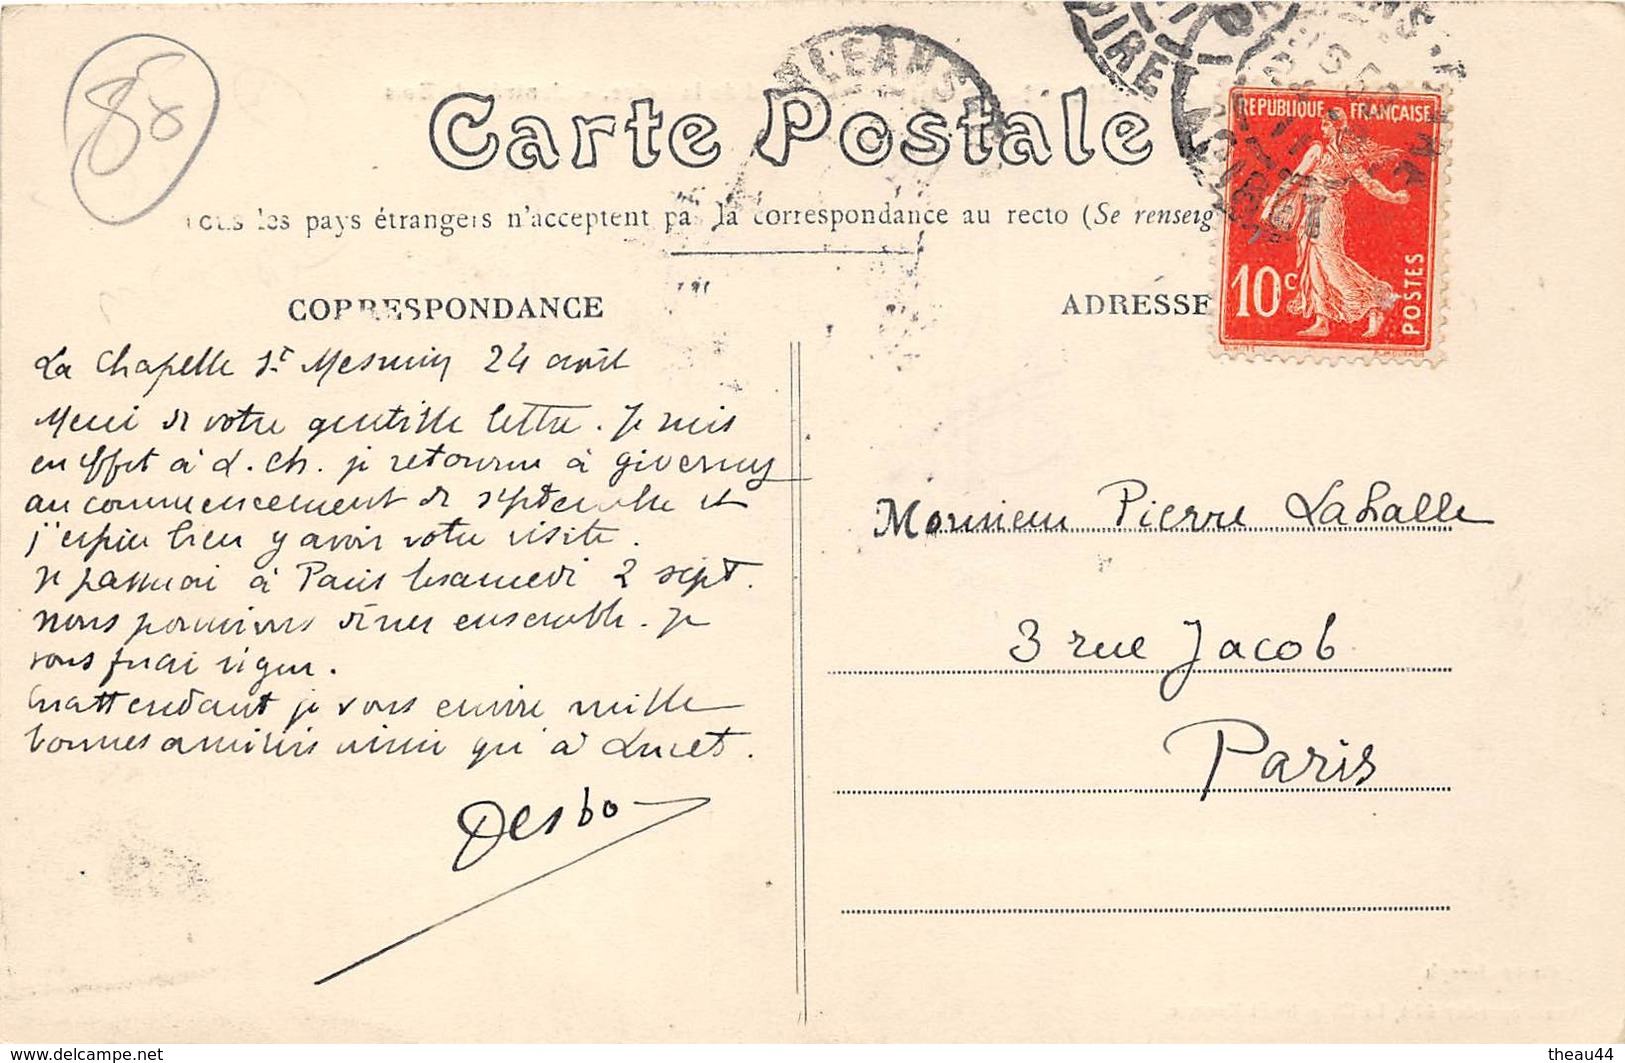 88
Carte Postale
Tous les pays étrangers n'acceptent pas la correspondance au recto (Se renseig
CORRESPONDANCE
ADRESSE
REPUBLIQUE FRANÇAISE
10c
POSTES
ORLEANS
La Chapelle St Mesmin 24 août
Merci de votre gentille lettre. Je suis
en effet à L. Ch. je retourne à Giverny
au commencement de septembre et
j'espère bien y avoir votre visite.
Je passerai à Paris le samedi 2 sept.
nous pourrions dîner ensemble. Je
vous ferai signe.
En attendant je vous envoie mille
bonnes amitiés ainsi qu'à Lucet.
Desbo
Monsieur Pierre Lahalle
3 rue Jacob
Paris
www.delcampe.net
theau44